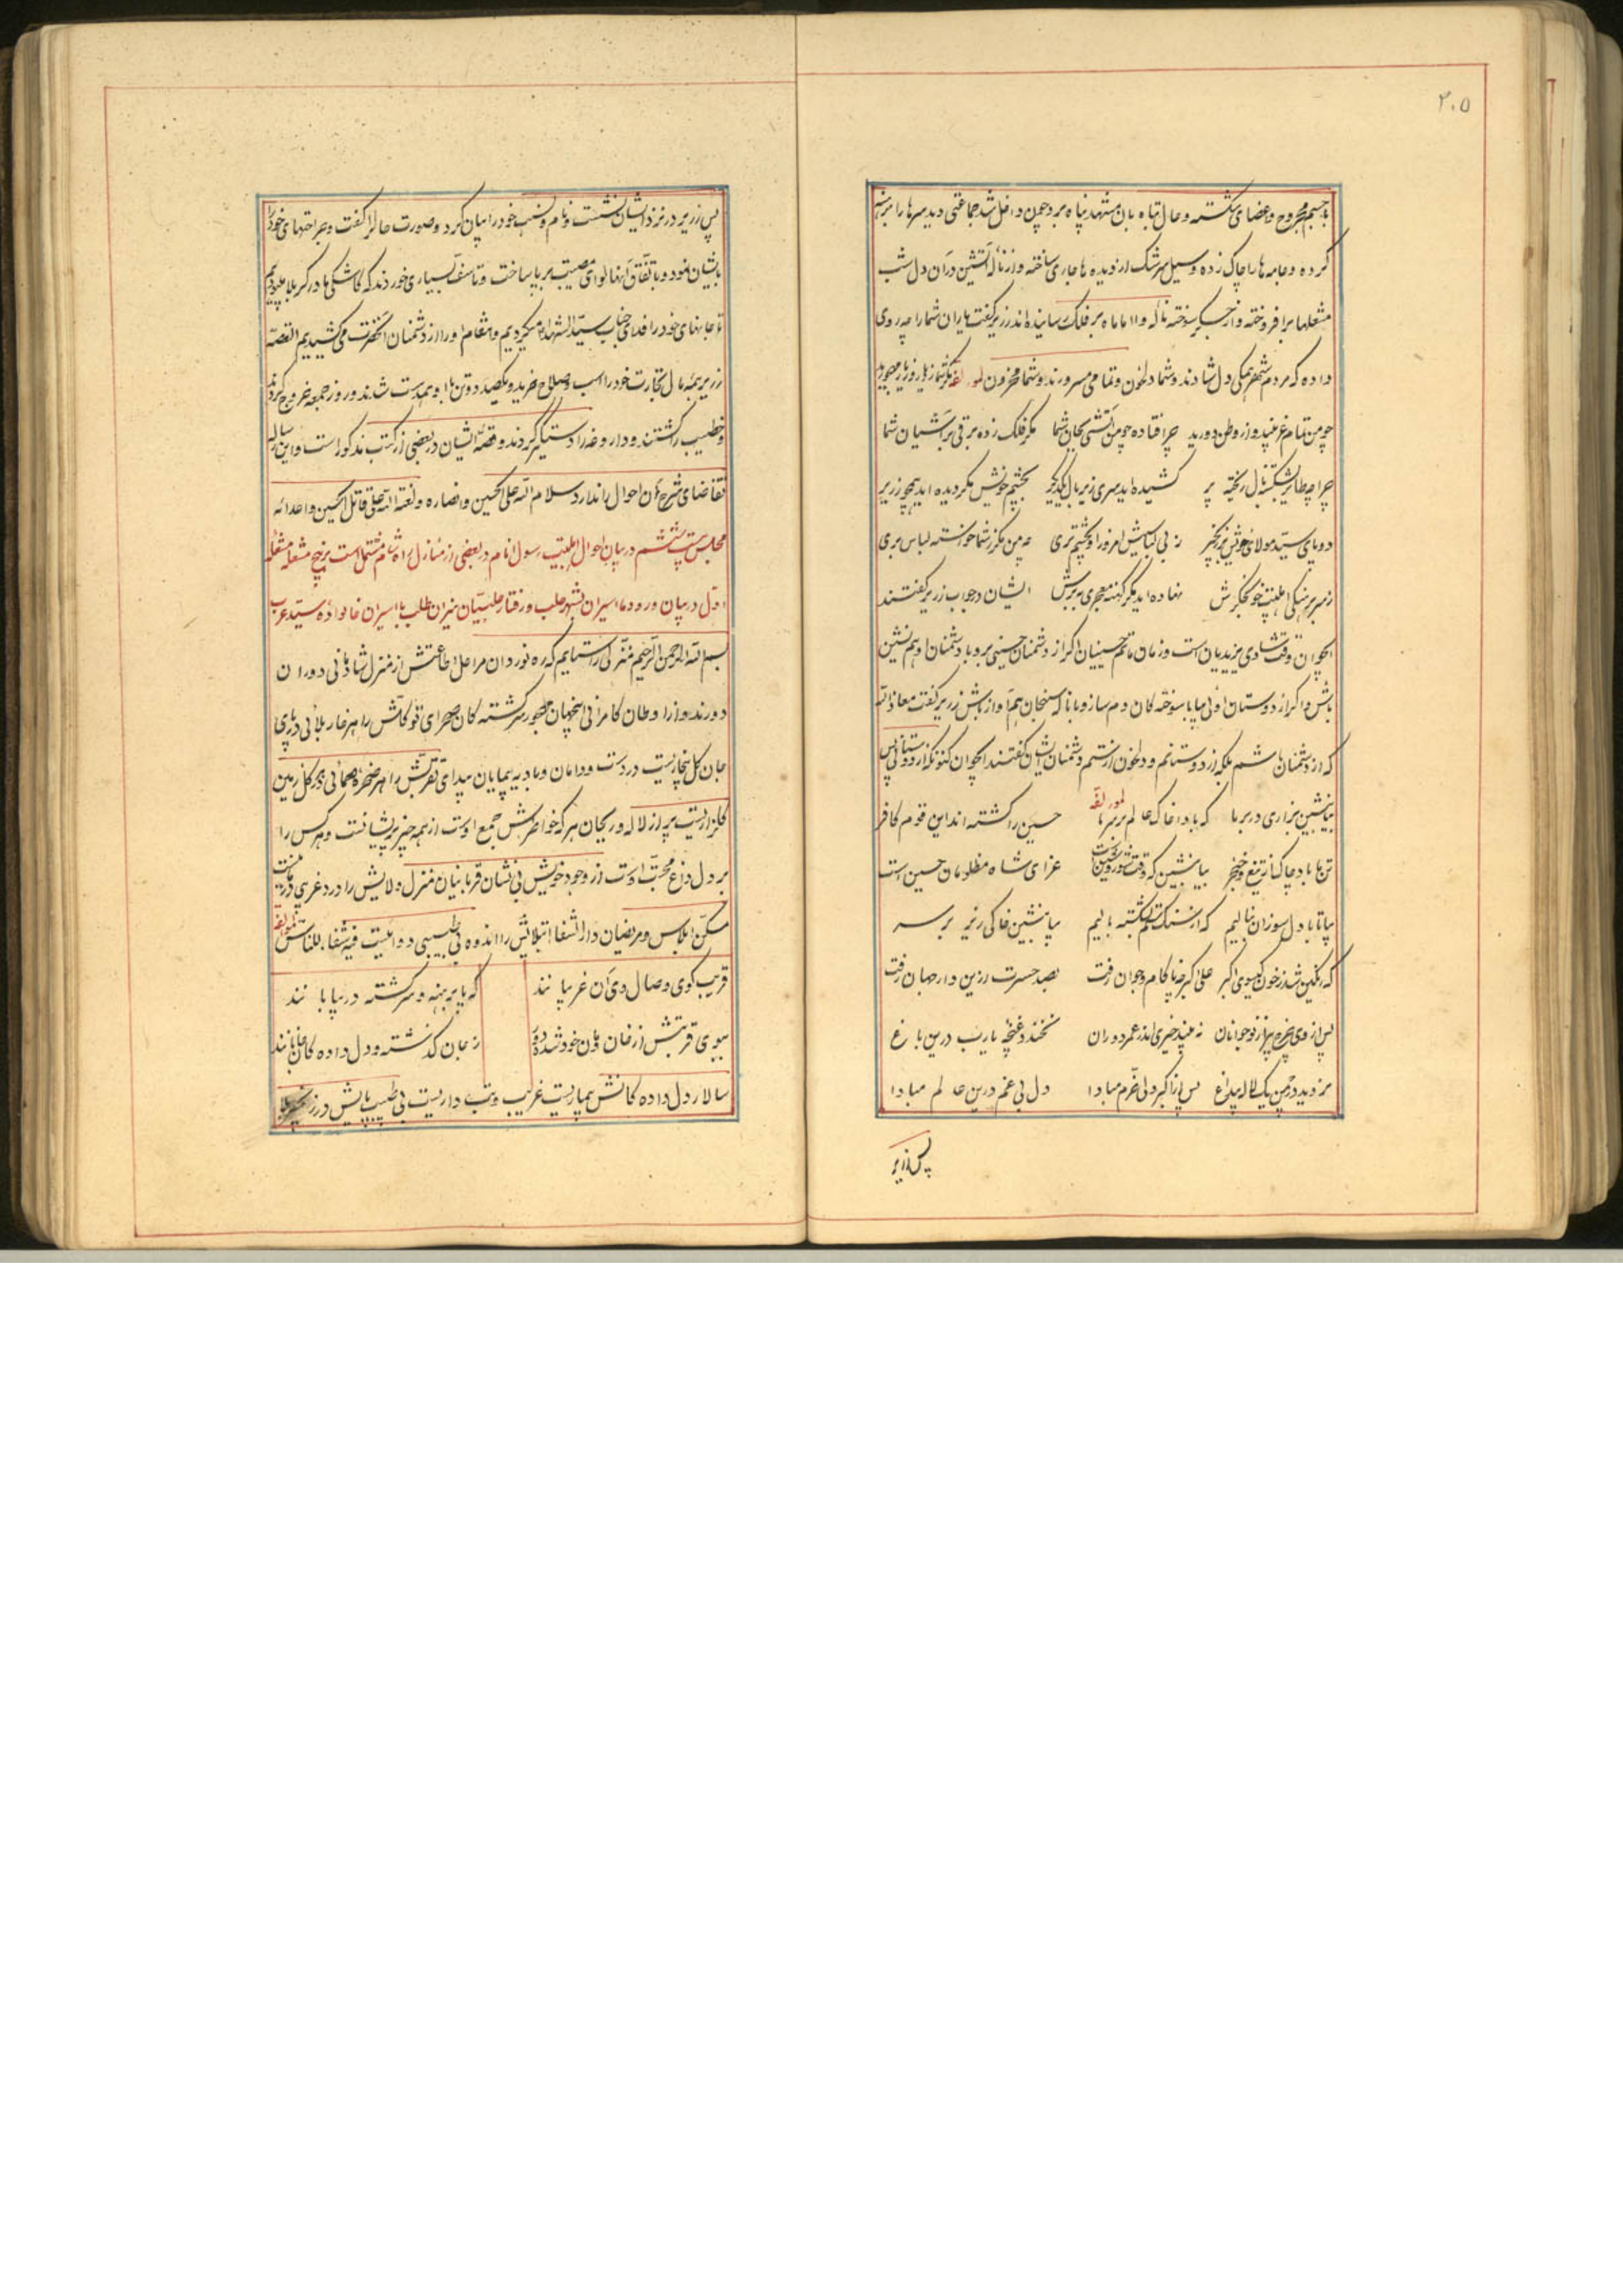 ۲۰۵
با جسم مجروح و اعضای شکسته و حال تباه بان مشهد پناه برد چون داخل شد جماعتی دید سرها را برهنه
کرده و جامه ها را چاک زده و سیل سرشک از دیده ها جاری ساخته و از ناله آتشین در آن دل شب
مشعلها برافروخته و از جگر سوخته ناله وا اماماه بر فلک رسانیده اند زریر گفت یاران شما را چه روی
داده که مردم شهر همگی دل شادند و شما دلخون و تمامی مسرورند و شما محزون لمولفه مگر شما ز یار و دیار مهجورید
چو من تمام غریبید و از وطن دورید چرا فتاده چو من آتشی بجان شما مگر فلک زده برقی بر آشیان شما
چرا چه طایر بشکسته بال ریخته پر کشیده اید سری زیر بال یکدیگر بچشم خویش مگر دیده اید همچو زریر
دو پای سید مولای خویش در زنجیر ز بی کسیش امروز را بچشم تری چه من مگر ز شما خواسته لباس سری
ز سر برهنگی اهلبیت خونجگرش نهاده اید مگر کهنه معجری بر سرش ایشان در جواب زریر گفتند
ایجوان وقت شادی یزیدیان است و زمان ماتم حسینیان اگر از دشمنان حسینی برو با دشمنان او هم نشین
باش و اگر از دوستان اوئی بیا با سوخته گان دم ساز و با ناله سنجان هم آواز باش زریر گفت معاذ الله
که از دشمنان باشم بلکه از دوستانم و دلخون از ستم دشمنان ایشان گفتند ایجوان کنونکه از دوستانی پس
بیا بنشین بزاری در بر ما که بادا خاک عالم بر سر ما لمولفه حسین را کشته اند این قوم کافر
تن ما باد چاک از تیغ و خنجر بیا بنشین که وقت شور و شین است عزای شاه مظلومان حسین است
بیا تا با دل سوزان بنالیم که از سنگ ستم بشکسته بالیم بیا بنشین خاکی ریز بر سر
که رنگین شد ز خون گیسوی اکبر علی اکبر چه ناکام و جوان رفت بصد حسرت ازین دار جهان رفت
پس از وی چرخ پیر از نوجوانان نه بیند خیری اندر عمر دوران نخندد غنچه یا رب درین باغ
نروید در چمن یک لاله بیداغ پس از اکبر دلی خرم مبادا دل بی غم درین عالم مبادا
پس زریر
پس زریر در نزد ایشان نشست و نام و نسب خود را بیان کرد و صورت حال را گفت و جراحتهای خود را
بایشان نمود و باتفاق آنها لوای مصیبت بر پا ساخت و تاسف بسیاری خوردند که کاشکی ما در کربلا میبودیم
تا جانهای خود را فدای جناب سید الشهدا میکردیم و انتقام او را از دشمنان آنحضرت می کشیدیم القصه
زریر بهمه مال تجارت خود را اسب و صلاح خرید و یکصد و دو تن با او همدست شدند و روز جمعه خروج کردند
و خطیب را کشتند و داروغه را دستگیر کردند و قصه ایشان در بعضی از کتب مذکور است و این رساله
تقاضای شرح آن احوال را ندارد سلام الله علی الحسین و انصاره و لعنة الله علی قاتل الحسین و اعدائه
مجلس بیست ششم در بیان احوال اهلبیت رسول انام در بعضی از منازل راه شام مشتمل است بر پنج مشعله مشعله
اول در بیان ورود اسیران بشهر حلب و رفتار حلبیان میزان طلب با اسیران خانواده سید عرب
بسم الله الرحمن الرحیم منزلی را ستایم که ره نوردان مراحل اطاعتش از منزل شادمانی دوران
دورند و از اوطان کامرانی اینجهان مهجور سرگشته گان صحرای توکلش را هر خار بلائی در پای
جان گل بیخاریست در دست و دامان و بادیه پیمایان بیدای تقربش را هر صخره صمائی بر گل زمین
گلزاریست پر از لاله و ریحان هر که خواطرش جمع اوست از همه چیز پریشانست و هر کس را
بر دل داغ محبت اوست از وجود خویش بی نشان قربانیان منزل ولایش را درد غریبی
مسکن ایلاس و مریضان دار الشفا ابتلایش را اندوه بی طبیبی دوائیست فیه شفاء للناس لمولفه
قریب کوی وصال وی آن غریبانند که پا برهنه و سرگشته در بیابانند
ببوی قربتش از خان و مان خود شده دور ز جان گذشته و دل داده گان جانانند
سالار دل داده گانش بیماریست غریب و تب داریست بی طبیب پایش در زنجیر